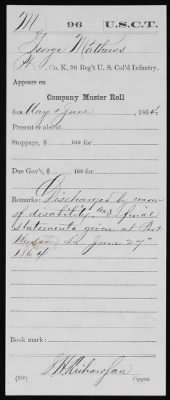 M 96 U.S.C.T.
George Mathews
Co. K, 96 Reg't U. S. Col'd Infantry.
Appears on
Company Muster Roll
for May & June, 1864.
Present or absent
Stoppage, $ 100 for
Due Gov't, $ 100 for
Remarks: Discharged by reason
of disability. final
statements given at Port
Hudson La June 27th
1864
Book mark:
(858) Copyist.